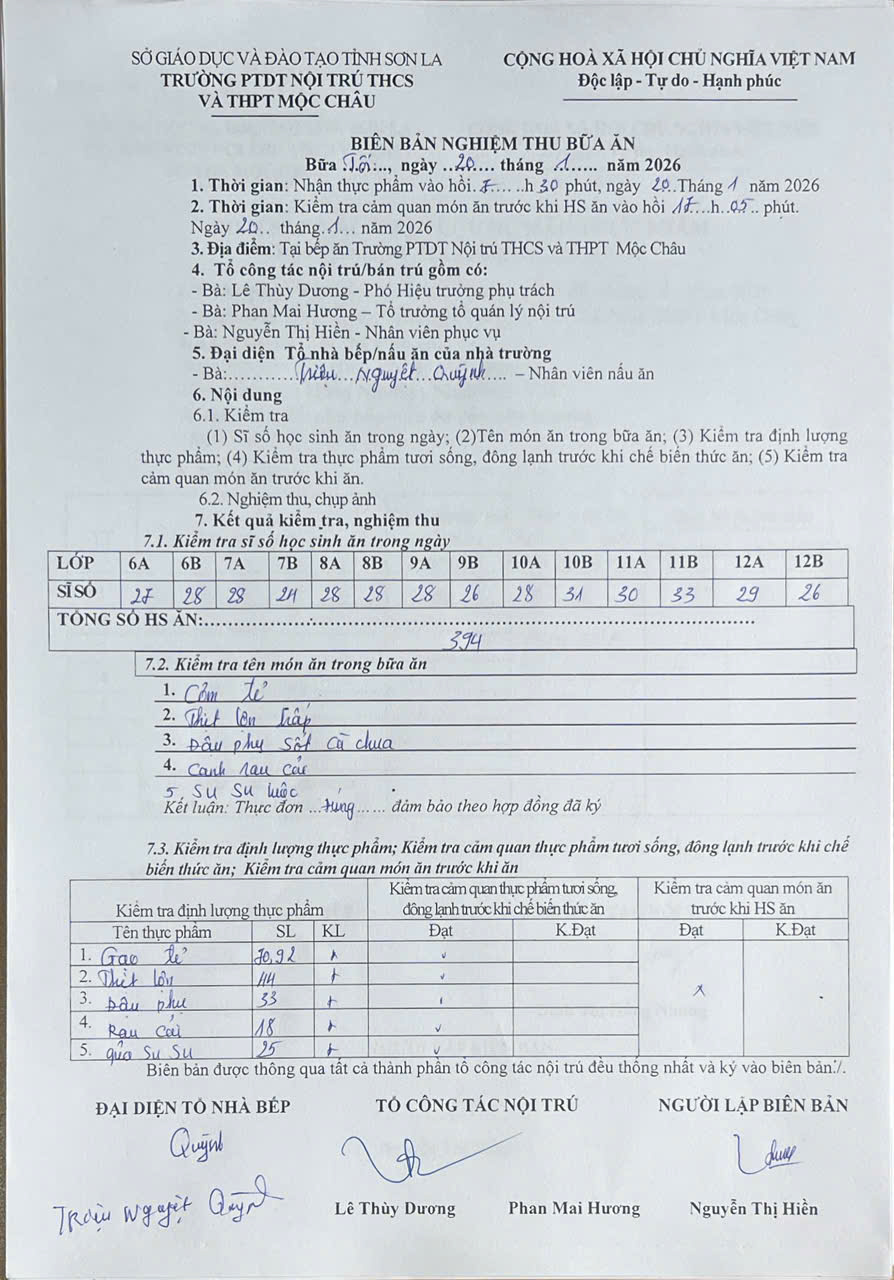 SỞ GIÁO DỤC VÀ ĐÀO TẠO TỈNH SƠN LA
TRƯỜNG PTDT NỘI TRÚ THCS
VÀ THPT MỘC CHÂU
CỘNG HOÀ XÃ HỘI CHỦ NGHĨA VIỆT NAM
Độc lập - Tự do - Hạnh phúc
BIÊN BẢN NGHIỆM THU BỮA ĂN
Bữ​a .Tối.., ngày ..20.... tháng .1..... năm 2026
1. Thời gian: Nhận thực phẩm vào hồi.7. .....h 30 phút, ngày 20..Tháng 1 năm 2026
2. Thời gian: Kiểm tra cảm quan món ăn trước khi HS ăn vào hồi 17...h..05.. phút.
Ngày 20.. tháng.1... năm 2026
3. Địa điểm: Tại bếp ăn Trường PTDT Nội trú THCS và THPT Mộc Châu
4. Tổ công tác nội trú/bán trú gồm có:
- Bà: Lê Thùy Dương - Phó Hiệu trưởng phụ trách
- Bà: Phan Mai Hương – Tổ trưởng tổ quán lý nội trú
- Bà: Nguyễn Thị Hiền - Nhân viên phục vụ
5. Đại diện Tổ nhà bếp/nấu ăn của nhà trường
- Bà:............Triệu...Nguyệt...Quỳnh.... – Nhân viên nấu ăn
6. Nội dung
6.1. Kiểm tra
(1) Sĩ số học sinh ăn trong ngày; (2)Tên món ăn trong bữa ăn; (3) Kiểm tra định lượng
thực phẩm; (4) Kiểm tra thực phẩm tươi sống, đông lạnh trước khi chế biến thức ăn; (5) Kiểm tra
cảm quan món ăn trước khi ăn.
6.2. Nghiệm thu, chụp ảnh
7. Kết quả kiểm tra, nghiệm thu
7.1. Kiểm tra sĩ số học sinh ăn trong ngày
LỚP 6A 6B 7A 7B 8A 8B 9A 9B 10A 10B 11A 11B 12A 12B
SĨ SỐ 27 28 28 24 28 28 28 26 28 31 30 33 29 26
TỔNG SỐ HS ĂN:..........................................................
394
7.2. Kiểm tra tên món ăn trong bữa ăn
1. Cơm tẻ
2. Thịt lợn hấp
3. Đậu phụ sốt cà chua
4. Canh rau cải
5. Su Su luộc
Kết luận: Thực đơn ...đúng...... đảm bảo theo hợp đồng đã ký
7.3. Kiểm tra định lượng thực phẩm; Kiểm tra cảm quan thực phẩm tươi sống, đông lạnh trước khi chế
biến thức ăn; Kiểm tra cảm quan món ăn trước khi ăn
Kiểm tra định lượng thực phẩm
Kiểm tra cảm quan thực phẩm tươi sống,
đông lạnh trước khi chế biến thức ăn
Kiểm tra cảm quan món ăn
trước khi HS ăn
Tên thực phẩm SL KL Đạt K.Đạt Đạt K.Đạt
1. Gạo tẻ 70,92 +
2. Thịt lợn 44 +
3. Đậu phụ 33 +
x
4. Rau cải 18 +
5. quả Su Su 25 +
Biên bản được thông qua tất cả thành phần tổ công tác nội trú đều thống nhất và ký vào biên bản./.
ĐẠI DIỆN TỔ NHÀ BẾP
TỔ CÔNG TÁC NỘI TRÚ
NGƯỜI LẬP BIÊN BẢN
Quỳnh
Triệu Nguyệt Quỳnh
Lê Thùy Dương
Phan Mai Hương
Nguyễn Thị Hiền